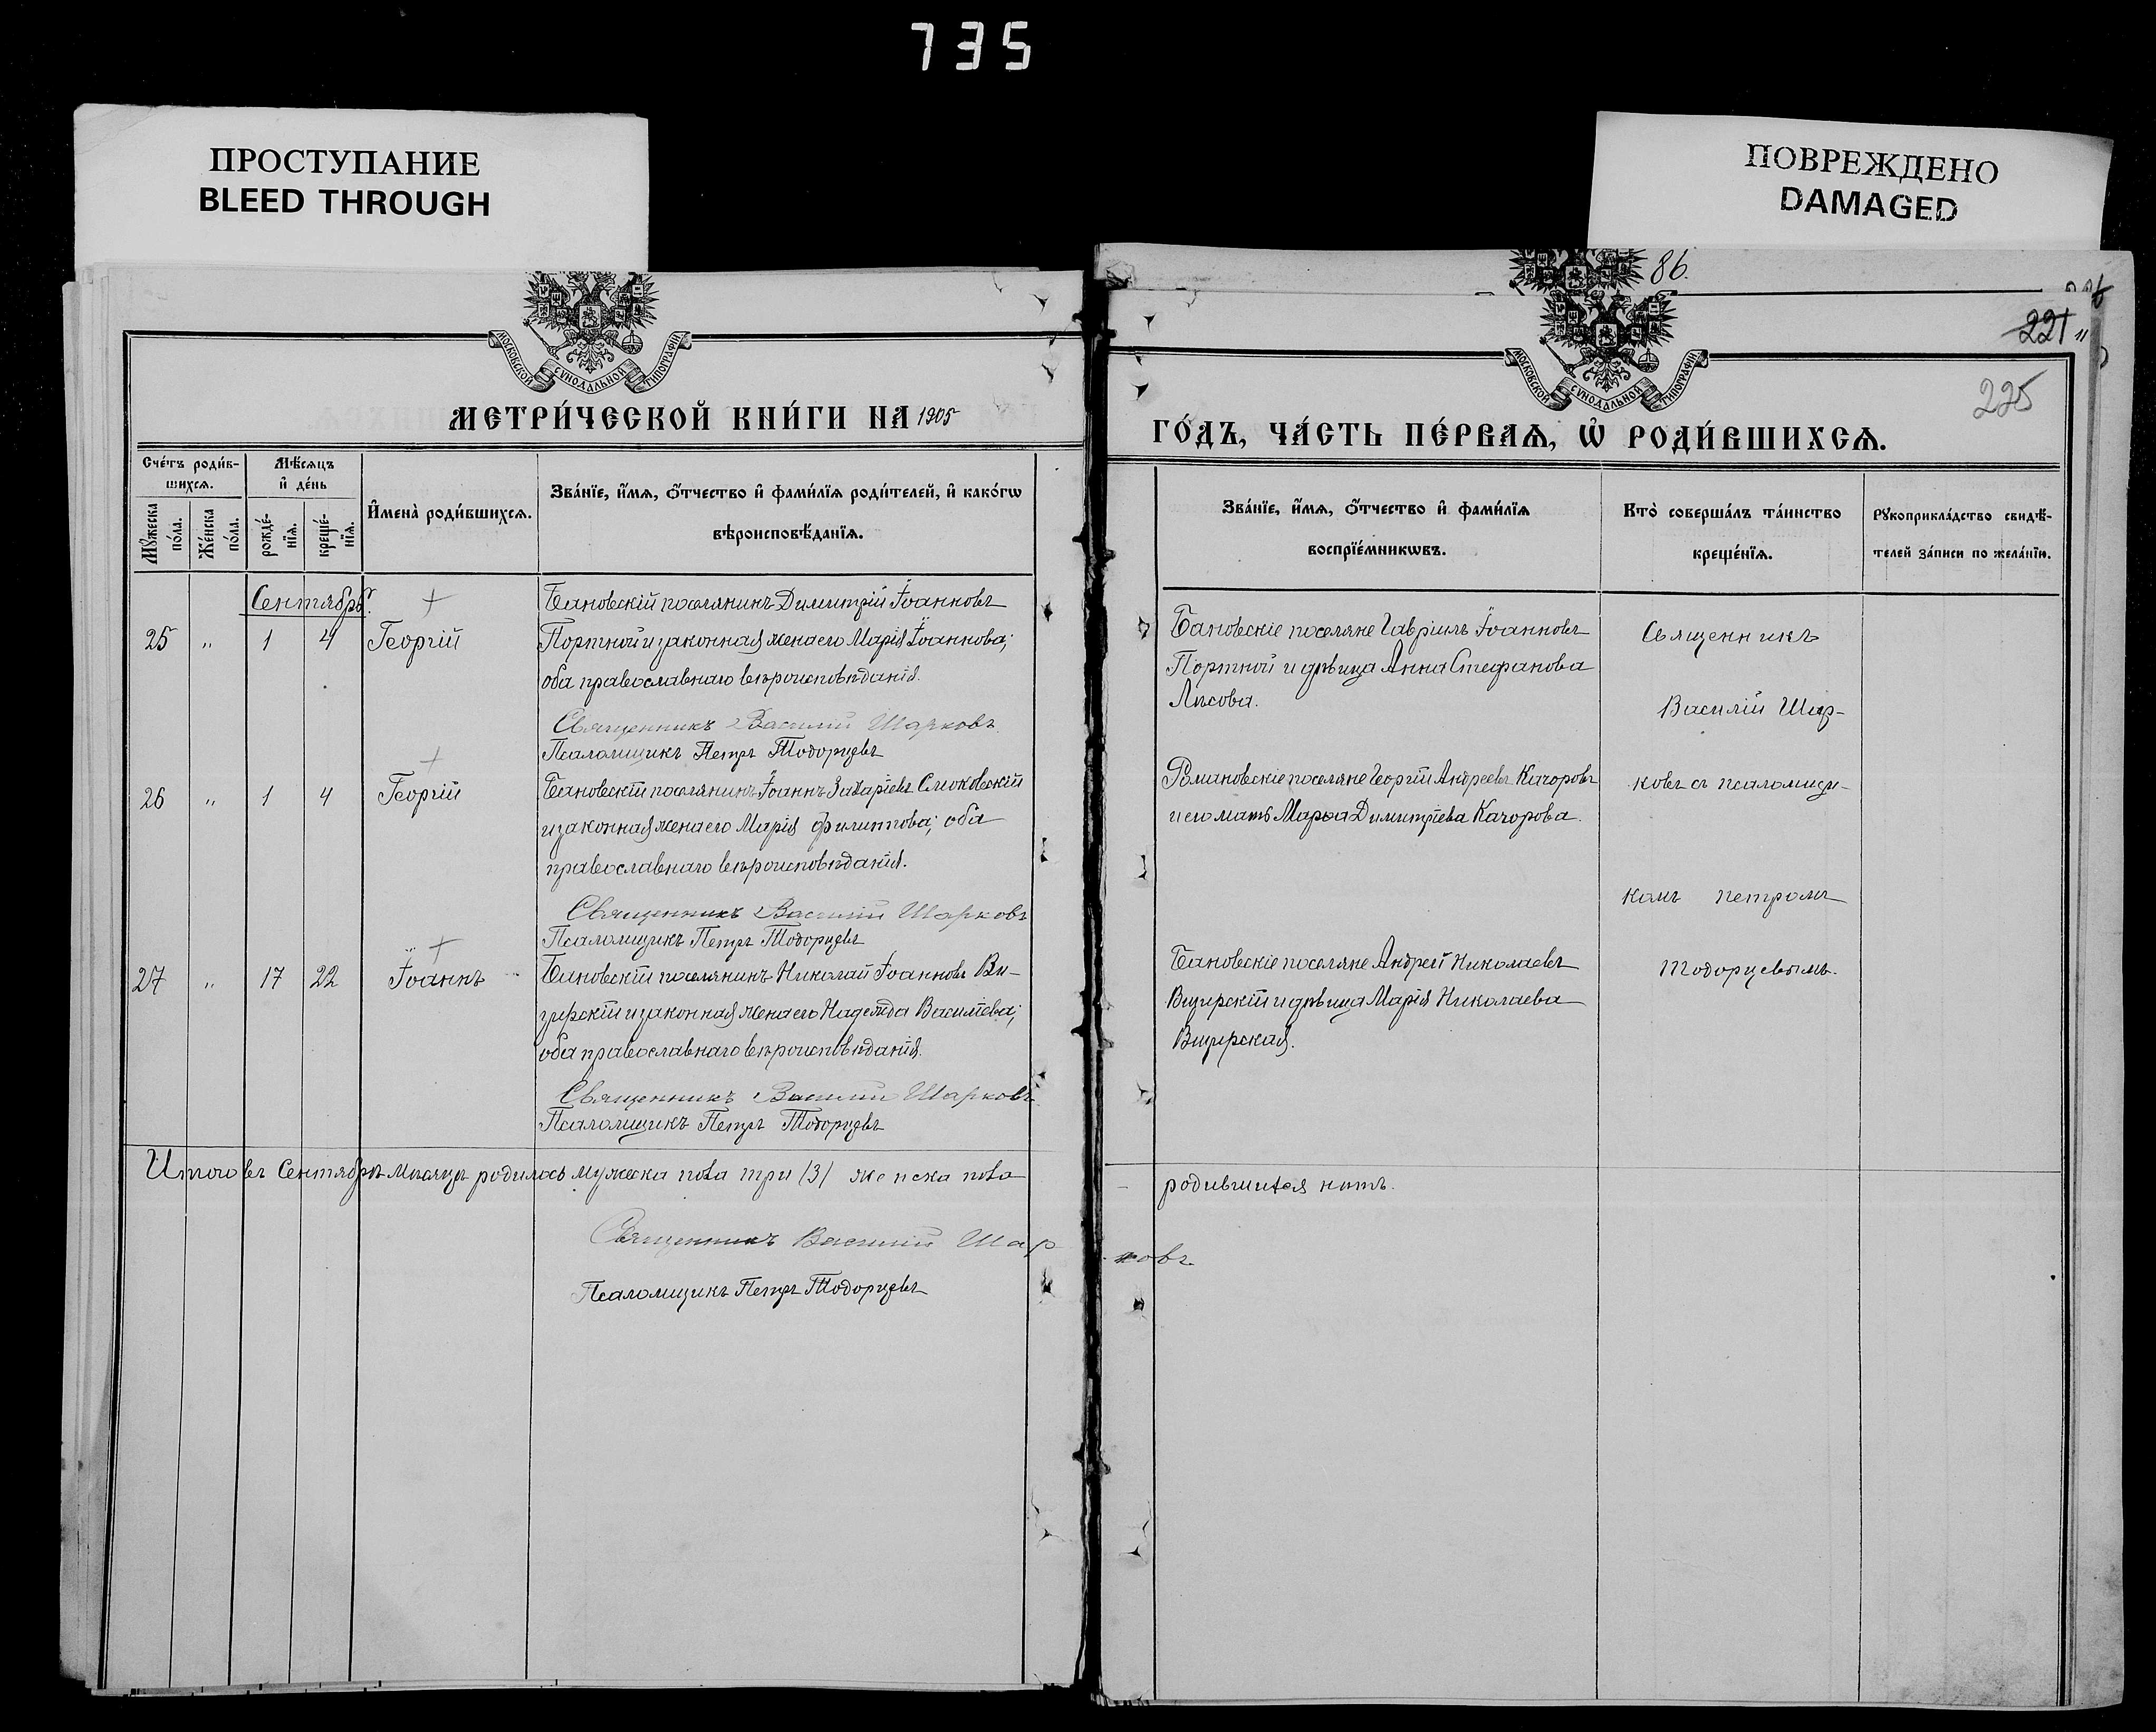 735
ПРОСТУПАНИЕ
BLEED THROUGH
ПОВРЕЖДЕНО
DAMAGED
86.
221
225
МОСКОВСКОЙ СѴНОДАЛЬНОЙ ТИПОГРАФІИ
МОСКОВСКОЙ СѴНОДАЛЬНОЙ ТИПОГРАФІИ
МЕТРИ́ЧЕСКОЙ КНИ́ГИ НА 1905
ГО́ДЪ, ЧА́СТЬ ПЕ́РВАѦ, Ѡ҆ РОДИ́ВШИХСѦ.
Сче́тъ роди́в-
шихсѧ.
Мѣ́сѧцъ
и҆ де́нь
Мꙋ́жеска
по́ла.
Же́нска
по́ла.
рожде́-
нїѧ.
креще́-
нїѧ.
И҆мена̀ роди́вшихсѧ.
Зва́нїе, и҆́мѧ, ѻ҆́тчество и҆ фами́лїѧ роди́телей, и҆ како́гѡ
вѣроисповѣ́данїѧ.
Зва́нїе, и҆́мѧ, ѻ҆́тчество и҆ фами́лїѧ
воспрїе́мникѡвъ.
Кто̀ соверша́лъ та́инство
креще́нїѧ.
Рꙋкоприкла́дство свидѣ́-
телей за́писи по жела́нїю.
Сентябрь.
25 " 1 4 Георгій
Бановскій поселянинъ Димитрій Іоанновъ
Портной и законная жена его Марія Іоаннова;
оба православнаго вѣроисповѣданія.
Священникъ Василій Шарковъ
Псаломщикъ Петръ Тодорцевъ
Бановскіе поселяне Гавріилъ Іоанновъ
Портной и дѣвица Анна Стефанова
Лѣсова.
26 " 1 4 Георгій
Бановскій поселянинъ Іоаннъ Захаріевъ Слюковскій
и законная жена его Марія Филиппова; оба
православнаго вѣроисповѣданія.
Священникъ Василій Шарковъ
Псаломщикъ Петръ Тодорцевъ
Романовскіе поселяне Георгій Андреевъ Качоровъ
и его мать Марѳа Димитріева Качорова.
27 " 17 22 Іоаннъ
Бановскій поселянинъ Николай Іоанновъ Ви-
зирскій и законная жена его Надежда Василіева;
оба православнаго вѣроисповѣданія.
Священникъ Василій Шарковъ
Псаломщикъ Петръ Тодорцевъ
Бановскіе поселяне Андрей Николаевъ
Визирскій и дѣвица Марія Николаева
Визирская.
Священникъ
Василій Шар-
ковъ съ псаломщи-
комъ Петромъ
Тодорцевымъ.
Итого въ Сентябрѣ мѣсяцѣ родилось мужеска пола три (3) женска пола
родившихся нѣтъ.
Священникъ Василій Шарковъ
Псаломщикъ Петръ Тодорцевъ